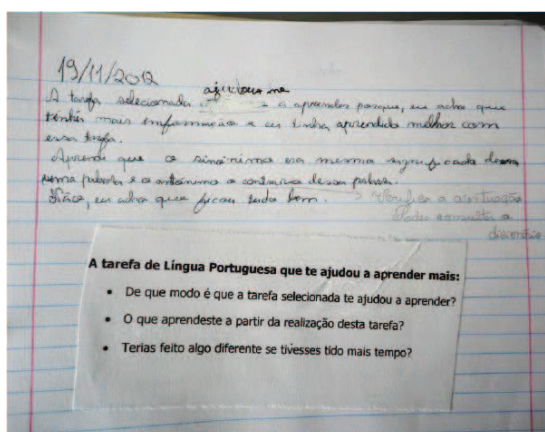 19/11/2012
ajudou me
A tarefa selecionada a aprender porque, eu acho que
tenhia mais informação e eu tinha aprendido melhor com
essa tarefa.
Aprendi que o sinónimo era mesmo significado
uma palavra e o antónimo o contrário dessa palavra.
eu acho que ficou tudo bem. verifica a acentuação
Podes consultar o
dicionário
A tarefa de Língua Portuguesa que te ajudou a aprender mais:
• De que modo é que a tarefa selecionada te ajudou a aprender?
• O que aprendeste a partir da realização desta tarefa?
• Terias feito algo diferente se tivesses tido mais tempo?